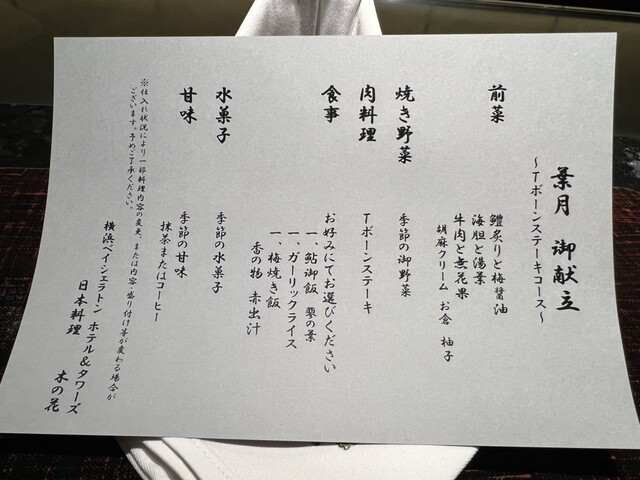 葉月 御献立
～Tボーンステーキコース～
前菜
鱧炙りと梅醤油
海胆と湯葉
牛肉と無花果
胡麻クリーム お倉 柚子
焼き野菜
季節の御野菜
肉料理
Tボーンステーキ
食事
お好みにてお選びください
一、鮎御飯 蓼の葉
一、ガーリックライス
一、梅焼き飯
香の物 赤出汁
水菓子
季節の水菓子
甘味
季節の甘味
抹茶またはコーヒー
※仕入れ状況により一部料理内容の変更、または内容・盛り付け等が変わる場合が
ございます。予めご了承ください。
横浜ベイシェラトン ホテル&タワーズ
日本料理 木の花